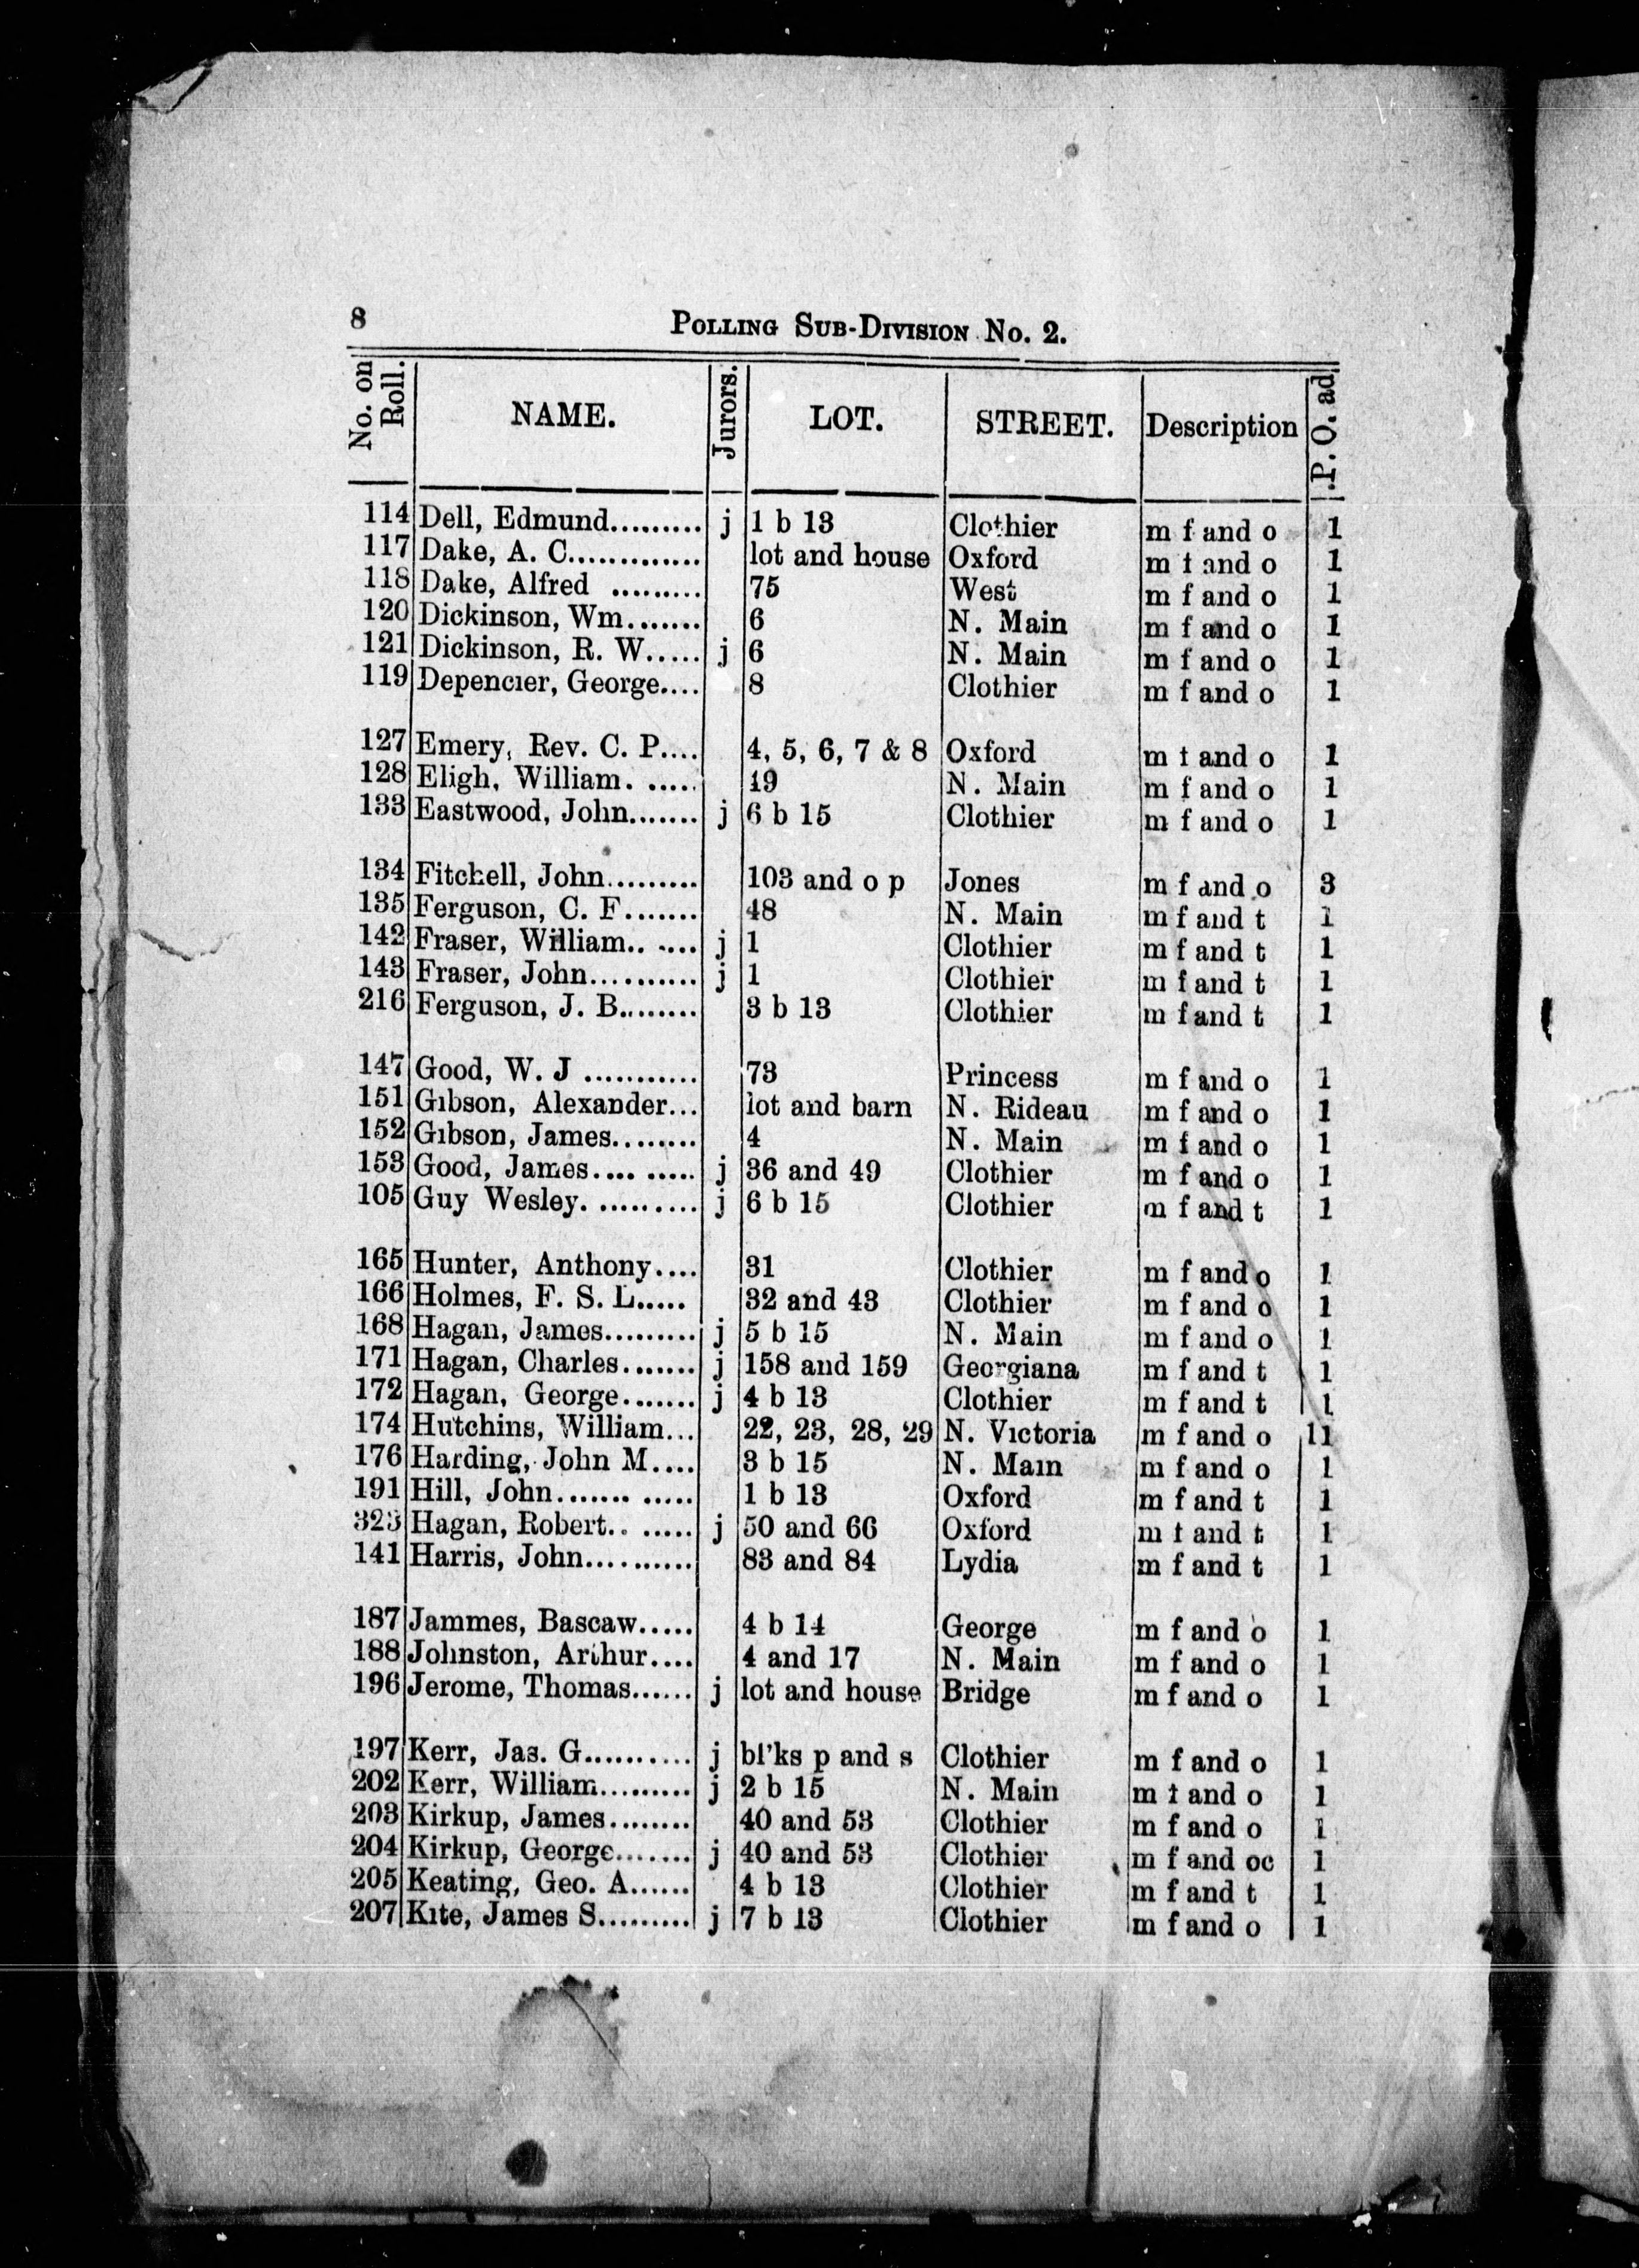 8 POLLING SUB-DIVISION No. 2.
No. on Roll. NAME. Jurors. LOT. STREET. Description P. O. ad.
114 Dell, Edmund......... j 1 b 13 Clothier m f and o 1
117 Dake, A. C............. lot and house Oxford m f and o 1
118 Dake, Alfred ......... 75 West m f and o 1
120 Dickinson, Wm....... 6 N. Main m f and o 1
121 Dickinson, R. W..... j 6 N. Main m f and o 1
119 Depencier, George.... 8 Clothier m f and o 1
127 Emery, Rev. C. P.... 4, 5, 6, 7 & 8 Oxford m f and o 1
128 Eligh, William. ..... 19 N. Main m f and o 1
133 Eastwood, John....... j 6 b 15 Clothier m f and o 1
134 Fitchell, John......... 103 and o p Jones m f and o 3
135 Ferguson, C. F....... 48 N. Main m f and t 1
142 Fraser, William.. .... j 1 Clothier m f and t 1
143 Fraser, John.......... j 1 Clothier m f and t 1
216 Ferguson, J. B........ 3 b 13 Clothier m f and t 1
147 Good, W. J ........... 73 Princess m f and o 1
151 Gibson, Alexander... lot and barn N. Rideau m f and o 1
152 Gibson, James........ 4 N. Main m f and o 1
153 Good, James.... ..... j 36 and 49 Clothier m f and o 1
105 Guy Wesley. ......... j 6 b 15 Clothier m f and t 1
165 Hunter, Anthony.... 31 Clothier m f and o 1
166 Holmes, F. S. L..... 32 and 43 Clothier m f and o 1
168 Hagan, James......... j 5 b 15 N. Main m f and o 1
171 Hagan, Charles....... j 158 and 159 Georgiana m f and t 1
172 Hagan, George....... j 4 b 13 Clothier m f and t 1
174 Hutchins, William... 22, 23, 28, 29 N. Victoria m f and o 11
176 Harding, John M.... 3 b 15 N. Main m f and o 1
191 Hill, John....... ..... 1 b 13 Oxford m f and t 1
323 Hagan, Robert.. ..... j 50 and 66 Oxford m f and t 1
141 Harris, John.......... 83 and 84 Lydia m f and t 1
187 Jammes, Bascaw..... 4 b 14 George m f and o 1
188 Johnston, Arthur.... 4 and 17 N. Main m f and o 1
196 Jerome, Thomas...... j lot and house Bridge m f and o 1
197 Kerr, Jas. G.......... j bl'ks p and s Clothier m f and o 1
202 Kerr, William......... j 2 b 15 N. Main m f and o 1
203 Kirkup, James........ 40 and 53 Clothier m f and o 1
204 Kirkup, George....... j 40 and 53 Clothier m f and oc 1
205 Keating, Geo. A...... 4 b 13 Clothier m f and t 1
207 Kite, James S......... j 7 b 13 Clothier m f and o 1